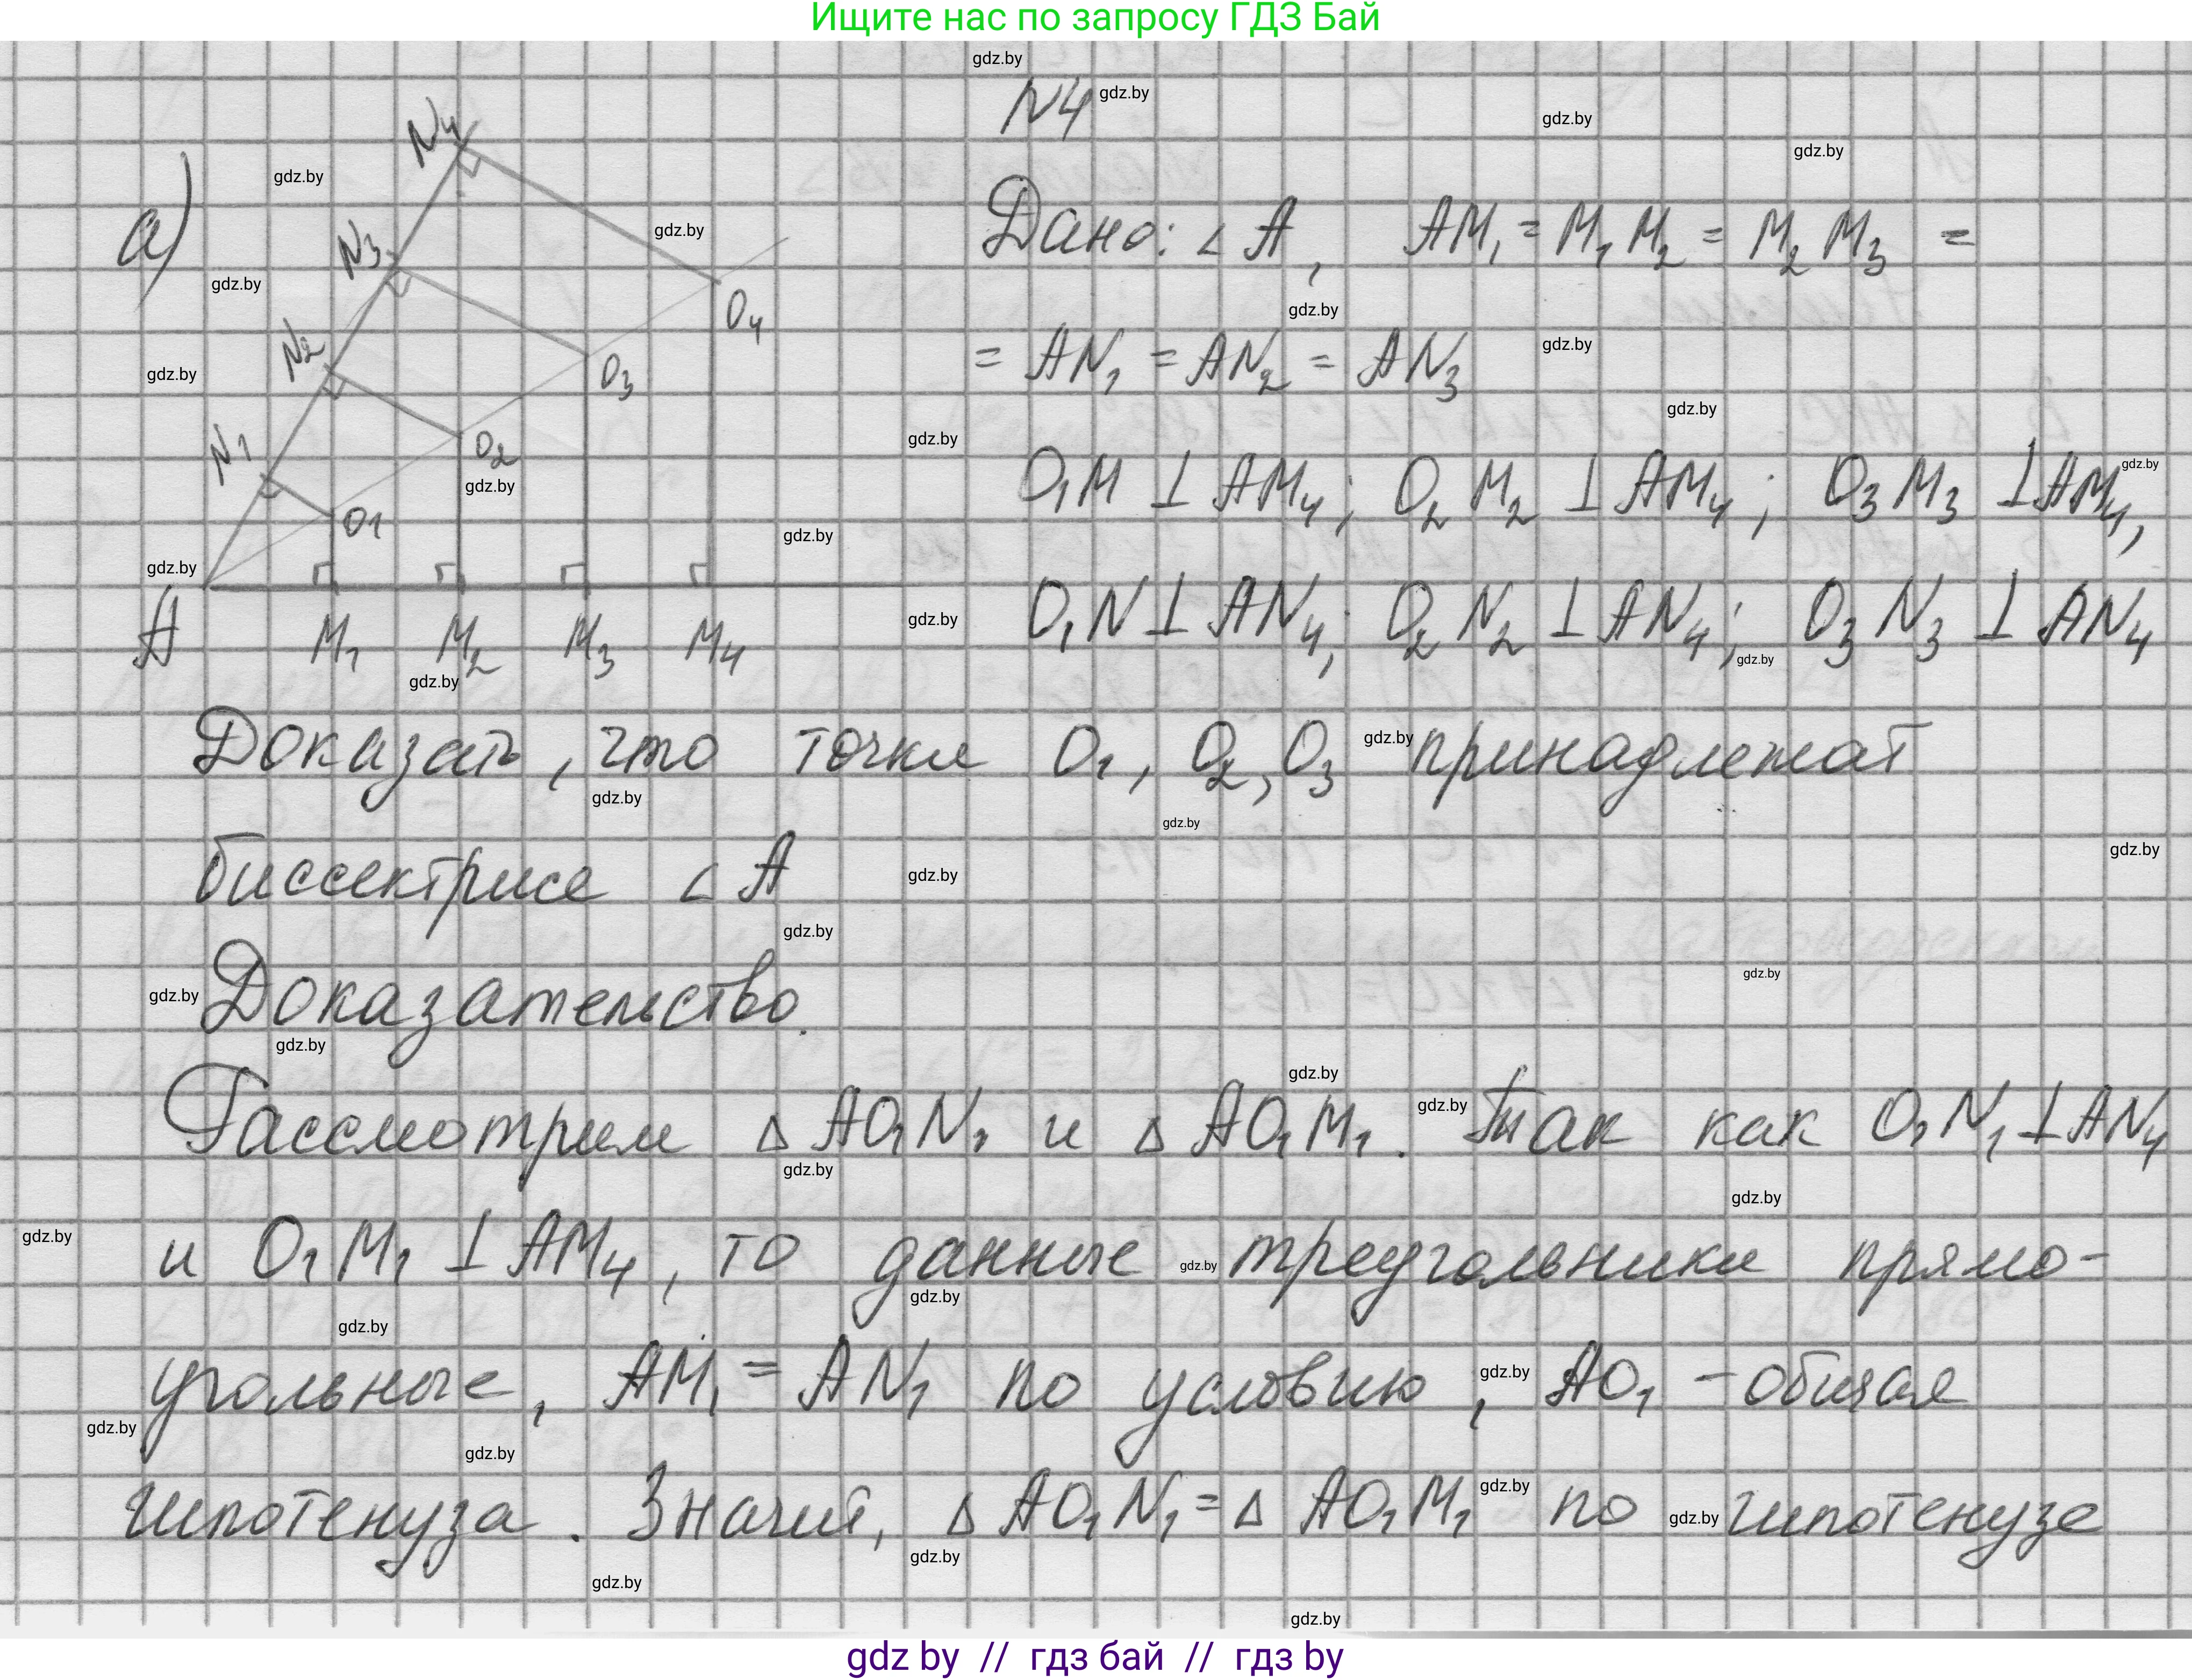 Ищите нас по запросу ГДЗ Бай
N4
а)
Дано: ∠A, AM₁ = M₁M₂ = M₂M₃ =
= AN₁ = AN₂ = AN₃
O₁M ⊥ AM₄; O₂M₂ ⊥ AM₄; O₃M₃ ⊥ AM₄,
O₁N ⊥ AN₄; O₂N₂ ⊥ AN₄; O₃N₃ ⊥ AN₄
N₄
N₃
N₂
N₁
O₄
O₃
O₂
O₁
A M₁ M₂ M₃ M₄
Доказать, что точки O₁, O₂, O₃ принадлежат
биссектрисе ∠A
Доказательство.
Рассмотрим △ AO₁N₁ и △ AO₁M₁. Так как O₁N₁ ⊥ AN₄
и O₁M₁ ⊥ AM₄, то данные треугольники прямо-
угольные, AM₁ = AN₁ по условию, AO₁ - общая
гипотенуза. Значит, △ AO₁N₁ = △ AO₁M₁ по гипотенузе
gdz by // гдз бай // гдз by